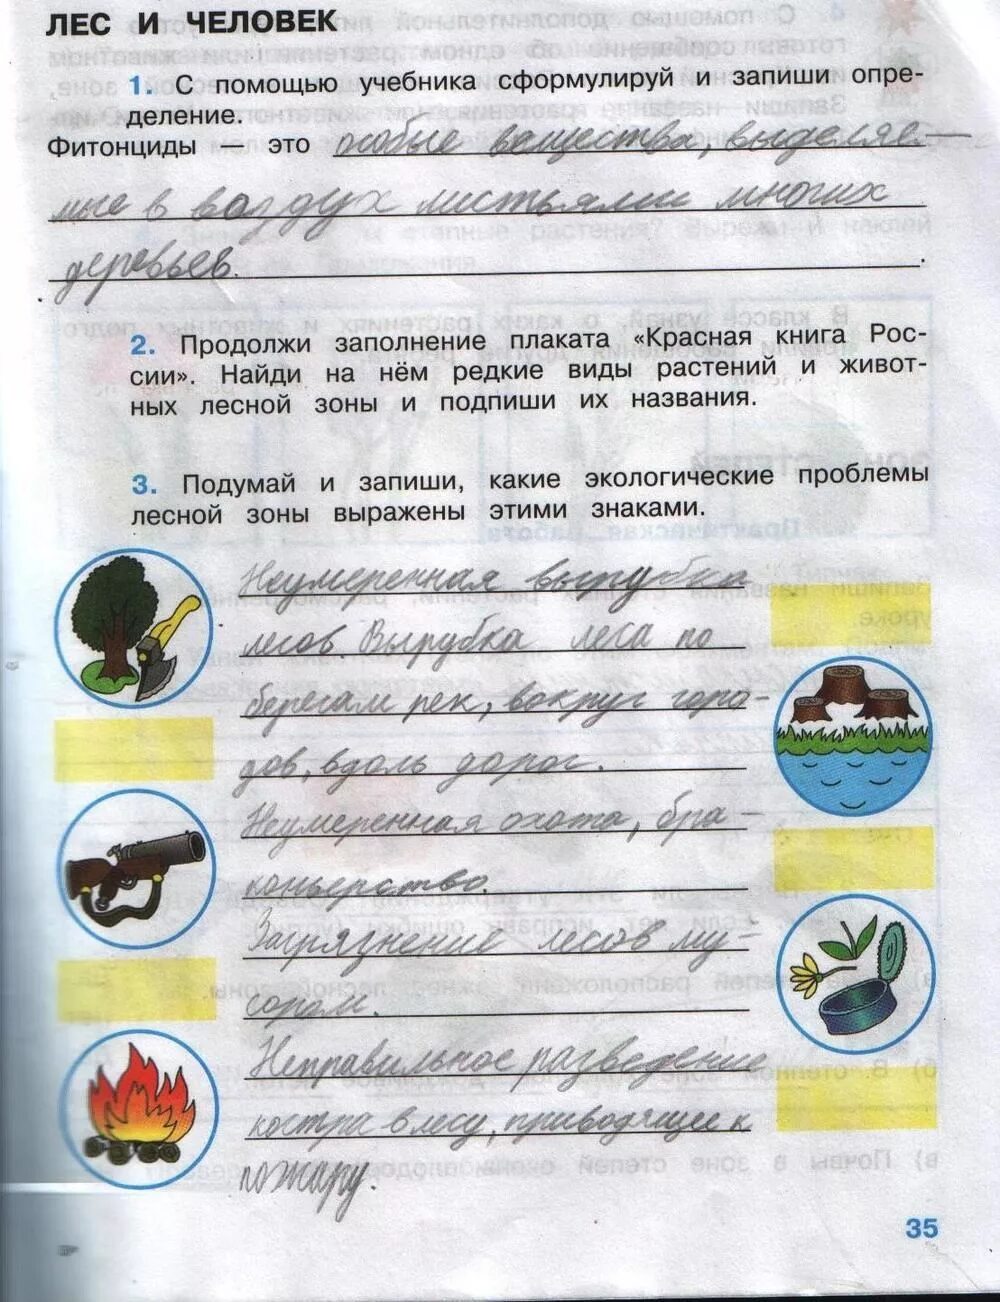 ЛЕС И ЧЕЛОВЕК
1. С помощью учебника сформулируй и запиши опре-
деление.
Фитонциды это особые вещества, выделяе-
мые в воздух листьями многих
деревьев.
2. Продолжи заполнение плаката «Красная книга Рос-
сии». Найди на нём редкие виды растений и живот-
ных лесной зоны и подпиши их названия.
3. Подумай и запиши, какие экологические проблемы
лесной зоны выражены этими знаками.
Неумеренная вырубка
лесов Вырубка леса по
берегам рек, вокруг горо-
дов, вдоль дорог.
Неумеренная охота, бра-
коньерство.
Загрязнение лесов му-
сором.
Неправильное разведение
костра в лесу, приводящее к
пожару.
35